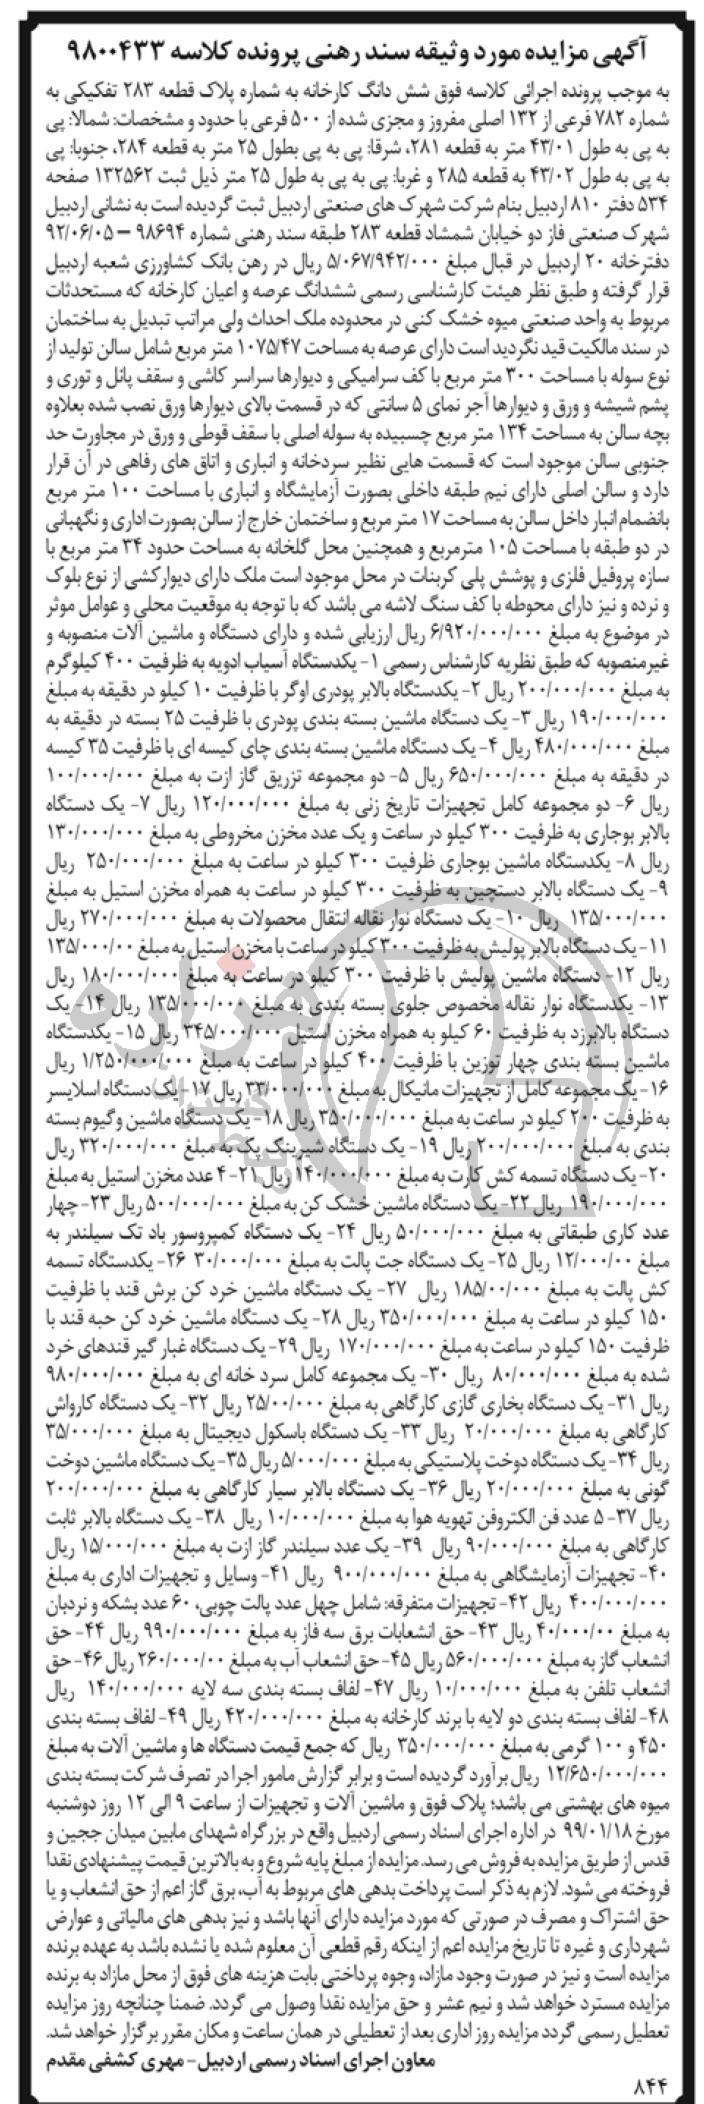 آگهی مزایده مورد وثیقه سند رهنی پرونده کلاسه ۹۸۰۰۴۳۳
به موجب پرونده اجرائی کلاسه فوق شش دانگ کارخانه به شماره پلاک قطعه ۲۸۳ تفکیکی به
شماره ۷۸۲ فرعی از ۱۳۲ اصلی مفروز و مجزی شده از ۵۰۰ فرعی با حدود و مشخصات: شمالا: پی
به پی به طول ۴۳/۰۱ متر به قطعه ۲۸۱، شرقا: پی به پی بطول ۲۵ متر به قطعه ۲۸۴، جنوبا: پی
به پی به طول ۴۳/۰۲ به قطعه ۲۸۵ و غربا: پی به پی به طول ۲۵ متر ذیل ثبت ۱۳۲۵۶۲ صفحه
۵۳۴ دفتر ۸۱۰ اردبیل بنام شرکت شهرک های صنعتی اردبیل ثبت گردیده است به نشانی اردبیل
شهرک صنعتی فاز دو خیابان شمشاد قطعه ۲۸۳ طبقه سند رهنی شماره ۹۸۶۹۴ – ۹۲/۰۶/۰۵
دفترخانه ۲۰ اردبیل در قبال مبلغ ۵/۰۶۷/۹۴۲/۰۰۰ ریال در رهن بانک کشاورزی شعبه اردبیل
قرار گرفته و طبق نظر هیئت کارشناسی رسمی ششدانگ عرصه و اعیان کارخانه که مستحدثات
مربوط به واحد صنعتی میوه خشک کنی در محدوده ملک احداث ولی مراتب تبدیل به ساختمان
در سند مالکیت قید نگردید است دارای عرصه به مساحت ۱۰۷۵/۴۷ متر مربع شامل سالن تولید از
نوع سوله با مساحت ۳۰۰ متر مربع با کف سرامیکی و دیوارها سراسر کاشی و سقف پانل و توری و
پشم شیشه و ورق و دیوارها آجر نمای ۵ سانتی که در قسمت بالای دیوارها ورق نصب شده بعلاوه
بچه سالن به مساحت ۱۳۴ متر مربع چسبیده به سوله اصلی با سقف قوطی و ورق در مجاورت حد
جنوبی سالن موجود است که قسمت هایی نظیر سردخانه و انباری و اتاق های رفاهی در آن قرار
دارد و سالن اصلی دارای نیم طبقه داخلی بصورت آزمایشگاه و انباری با مساحت ۱۰۰ متر مربع
بانضمام انبار داخل سالن به مساحت ۱۷ متر مربع و ساختمان خارج از سالن بصورت اداری و نگهبانی
در دو طبقه با مساحت ۱۰۵ مترمربع و همچنین محل گلخانه به مساحت حدود ۳۴ متر مربع با
سازه پروفیل فلزی و پوشش پلی کربنات در محل موجود است ملک دارای دیوارکشی از نوع بلوک
و نرده و نیز دارای محوطه با کف سنگ لاشه می باشد که با توجه به موقعیت محلی و عوامل موثر
در موضوع به مبلغ ۶/۹۲۰/۰۰۰/۰۰۰ ریال ارزیابی شده و دارای دستگاه و ماشین آلات منصوبه و
غیرمنصوبه که طبق نظریه کارشناس رسمی ۱- یکدستگاه آسیاب ادویه به ظرفیت ۴۰۰ کیلوگرم
به مبلغ ۲۰۰/۰۰۰/۰۰۰ ریال ۲- یکدستگاه بالابر پودری اوگر با ظرفیت ۱۰ کیلو در دقیقه به مبلغ
۱۹۰/۰۰۰/۰۰۰ ریال ۳- یک دستگاه ماشین بسته بندی پودری با ظرفیت ۲۵ بسته در دقیقه به
مبلغ ۴۸۰/۰۰۰/۰۰۰ ریال ۴- یک دستگاه ماشین بسته بندی چای کیسه ای با ظرفیت ۳۵ کیسه
در دقیقه به مبلغ ۶۵۰/۰۰۰/۰۰۰ ریال ۵- دو مجموعه تزریق گاز ازت به مبلغ ۱۰۰/۰۰۰/۰۰۰
ریال ۶- دو مجموعه کامل تجهیزات تاریخ زنی به مبلغ ۱۲۰/۰۰۰/۰۰۰ ریال ۷- یک دستگاه
بالابر بوجاری به ظرفیت ۳۰۰ کیلو در ساعت و یک عدد مخزن مخروطی به مبلغ ۱۳۰/۰۰۰/۰۰۰
ریال ۸- یکدستگاه ماشین بوجاری ظرفیت ۳۰۰ کیلو در ساعت به مبلغ ۲۵۰/۰۰۰/۰۰۰ ریال
۹- یک دستگاه بالابر دستچین به ظرفیت ۳۰۰ کیلو در ساعت به همراه مخزن استیل به مبلغ
۱۳۵/۰۰۰/۰۰۰ ریال ۱۰- یک دستگاه نوار نقاله انتقال محصولات به مبلغ ۲۷۰/۰۰۰/۰۰۰ ریال
۱۱- یک دستگاه بالابر پولیش به ظرفیت ۳۰۰ کیلو در ساعت با مخزن استیل به مبلغ ۱۳۵/۰۰۰/۰۰
ریال ۱۲- دستگاه ماشین پولیش با ظرفیت ۳۰۰ کیلو در ساعت به مبلغ ۱۸۰/۰۰۰/۰۰۰ ریال
۱۳- یکدستگاه نوار نقاله مخصوص جلوی بسته بندی به مبلغ ۱۳۵/۰۰۰/۰۰۰ ریال ۱۴- یک
دستگاه بالابرزد به ظرفیت ۶۰ کیلو به همراه مخزن استیل ۳۴۵/۰۰۰/۰۰۰ ریال ۱۵- یکدستگاه
ماشین بسته بندی چهار توزین با ظرفیت ۴۰۰ کیلو در ساعت به مبلغ ۱/۲۵۰/۰۰۰/۰۰۰ ریال
۱۶- یک مجموعه کامل از تجهیزات مانیکال به مبلغ ۳۳/۰۰۰/۰۰۰ ریال ۱۷- یک دستگاه اسلایسر
به ظرفیت ۲۰۰ کیلو در ساعت به مبلغ ۳۵۰/۰۰۰/۰۰۰ ریال ۱۸- یک دستگاه ماشین وگیوم بسته
بندی به مبلغ ۲۰۰/۰۰۰/۰۰۰ ریال ۱۹- یک دستگاه شیرینگ پک به مبلغ ۳۲۰/۰۰۰/۰۰۰ ریال
۲۰- یک دستگاه تسمه کش کارت به مبلغ ۱۴۰/۰۰۰/۰۰۰ ریال ۲۱- ۴ عدد مخزن استیل به مبلغ
۱۹۰/۰۰۰/۰۰۰ ریال ۲۲- یک دستگاه ماشین خشک کن به مبلغ ۵۰۰/۰۰۰/۰۰۰ ریال ۲۳- چهار
عدد کاری طبقاتی به مبلغ ۵۰/۰۰۰/۰۰۰ ریال ۲۴- یک دستگاه کمپروسور باد تک سیلندر به
مبلغ ۱۲/۰۰۰/۰۰ ریال ۲۵- یک دستگاه جت پالت به مبلغ ۳۰/۰۰۰/۰۰۰ ۲۶- یکدستگاه تسمه
کش پالت به مبلغ ۱۸۵/۰۰/۰۰۰ ریال ۲۷- یک دستگاه ماشین خرد کن برش قند با ظرفیت
۱۵۰ کیلو در ساعت به مبلغ ۳۵۰/۰۰۰/۰۰۰ ریال ۲۸- یک دستگاه ماشین خرد کن حبه قند با
ظرفیت ۱۵۰ کیلو در ساعت به مبلغ ۱۷۰/۰۰۰/۰۰۰ ریال ۲۹- یک دستگاه غبار گیر قندهای خرد
شده به مبلغ ۸۰/۰۰۰/۰۰۰ ریال ۳۰- یک مجموعه کامل سرد خانه ای به مبلغ ۹۸۰/۰۰۰/۰۰۰
ریال ۳۱- یک دستگاه بخاری گازی کارگاهی به مبلغ ۲۵/۰۰/۰۰۰ ریال ۳۲- یک دستگاه کارواش
کارگاهی به مبلغ ۲۰/۰۰۰/۰۰۰ ریال ۳۳- یک دستگاه باسکول دیجیتال به مبلغ ۳۵/۰۰۰/۰۰۰
ریال ۳۴- یک دستگاه دوخت پلاستیکی به مبلغ ۵/۰۰۰/۰۰۰ ریال ۳۵- یک دستگاه ماشین دوخت
گونی به مبلغ ۲۰/۰۰۰/۰۰۰ ریال ۳۶- یک دستگاه بالابر سیار کارگاهی به مبلغ ۲۰۰/۰۰۰/۰۰۰
ریال ۳۷- ۵ عدد فن الکتروفن تهویه هوا به مبلغ ۱۰/۰۰۰/۰۰۰ ریال ۳۸- یک دستگاه بالابر ثابت
کارگاهی به مبلغ ۹۰/۰۰۰/۰۰۰ ریال ۳۹- یک عدد سیلندر گاز ازت به مبلغ ۱۵/۰۰۰/۰۰۰ ریال
۴۰- تجهیزات آزمایشگاهی به مبلغ ۹۰۰/۰۰۰/۰۰۰ ریال ۴۱- وسایل و تجهیزات اداری به مبلغ
۴۰۰/۰۰۰/۰۰۰ ریال ۴۲- تجهیزات متفرقه: شامل چهل عدد پالت چوبی، ۶۰ عدد بشکه و نردبان
به مبلغ ۴۰/۰۰۰/۰۰ ریال ۴۳- حق انشعابات برق سه فاز به مبلغ ۹۹۰/۰۰۰/۰۰۰ ریال ۴۴- حق
انشعاب گاز به مبلغ ۵۶۰/۰۰۰/۰۰۰ ریال ۴۵- حق انشعاب آب به مبلغ ۲۶۰/۰۰۰/۰۰ ریال ۴۶- حق
انشعاب تلفن به مبلغ ۱۰/۰۰۰/۰۰۰ ریال ۴۷- لفاف بسته بندی سه لایه ۱۴۰/۰۰۰/۰۰۰ ریال
۴۸- لفاف بسته بندی دو لایه با برند کارخانه به مبلغ ۴۲۰/۰۰۰/۰۰۰ ریال ۴۹- لفاف بسته بندی
۴۵۰ و ۱۰۰ گرمی به مبلغ ۳۵۰/۰۰۰/۰۰۰ ریال که جمع قیمت دستگاه ها و ماشین آلات به مبلغ
۱۲/۶۵۰/۰۰۰/۰۰۰ ریال برآورد گردیده است و برابر گزارش مامور اجرا در تصرف شرکت بسته بندی
میوه های بهشتی می باشد؛ پلاک فوق و ماشین آلات و تجهیزات از ساعت ۹ الی ۱۲ روز دوشنبه
مورخ ۹۹/۰۱/۱۸ در اداره اجرای اسناد رسمی اردبیل واقع در بزرگراه شهدای مابین میدان ججین و
قدس از طریق مزایده به فروش می رسد. مزایده از مبلغ پایه شروع و به بالاترین قیمت پیشنهادی نقدا
فروخته می شود. لازم به ذکر است پرداخت بدهی های مربوط به آب، برق گاز اعم از حق انشعاب و یا
حق اشتراک و مصرف در صورتی که مورد مزایده دارای آنها باشد و نیز بدهی های مالیاتی و عوارض
شهرداری و غیره تا تاریخ مزایده اعم از اینکه رقم قطعی آن معلوم شده یا نشده باشد به عهده برنده
مزایده است و نیز در صورت وجود مازاد، وجوه پرداختی بابت هزینه های فوق از محل مازاد به برنده
مزایده مسترد خواهد شد و نیم عشر و حق مزایده نقدا وصول می گردد. ضمنا چنانچه روز مزایده
تعطیل رسمی گردد مزایده روز اداری بعد از تعطیلی در همان ساعت و مکان مقرر برگزار خواهد شد.
معاون اجرای اسناد رسمی اردبیل- مهری کشفی مقدم
۸۴۴